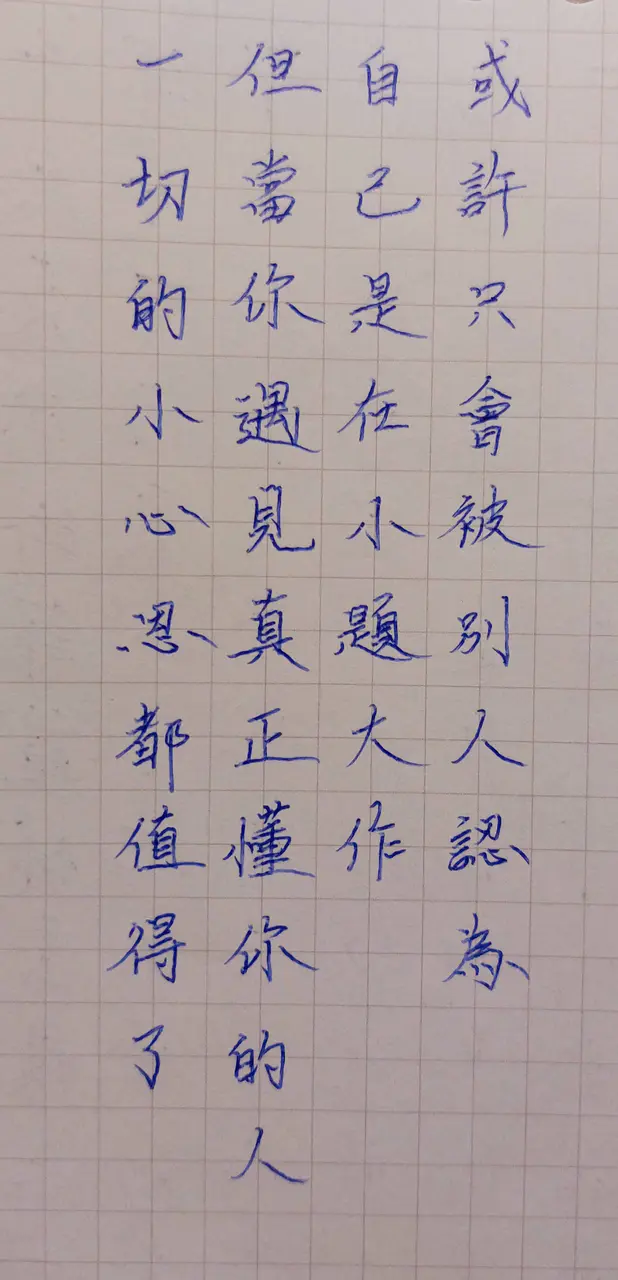 或許只會被別人認為
自己是在小題大作
但當你遇見真正懂你的人
一切的小心思都值得了